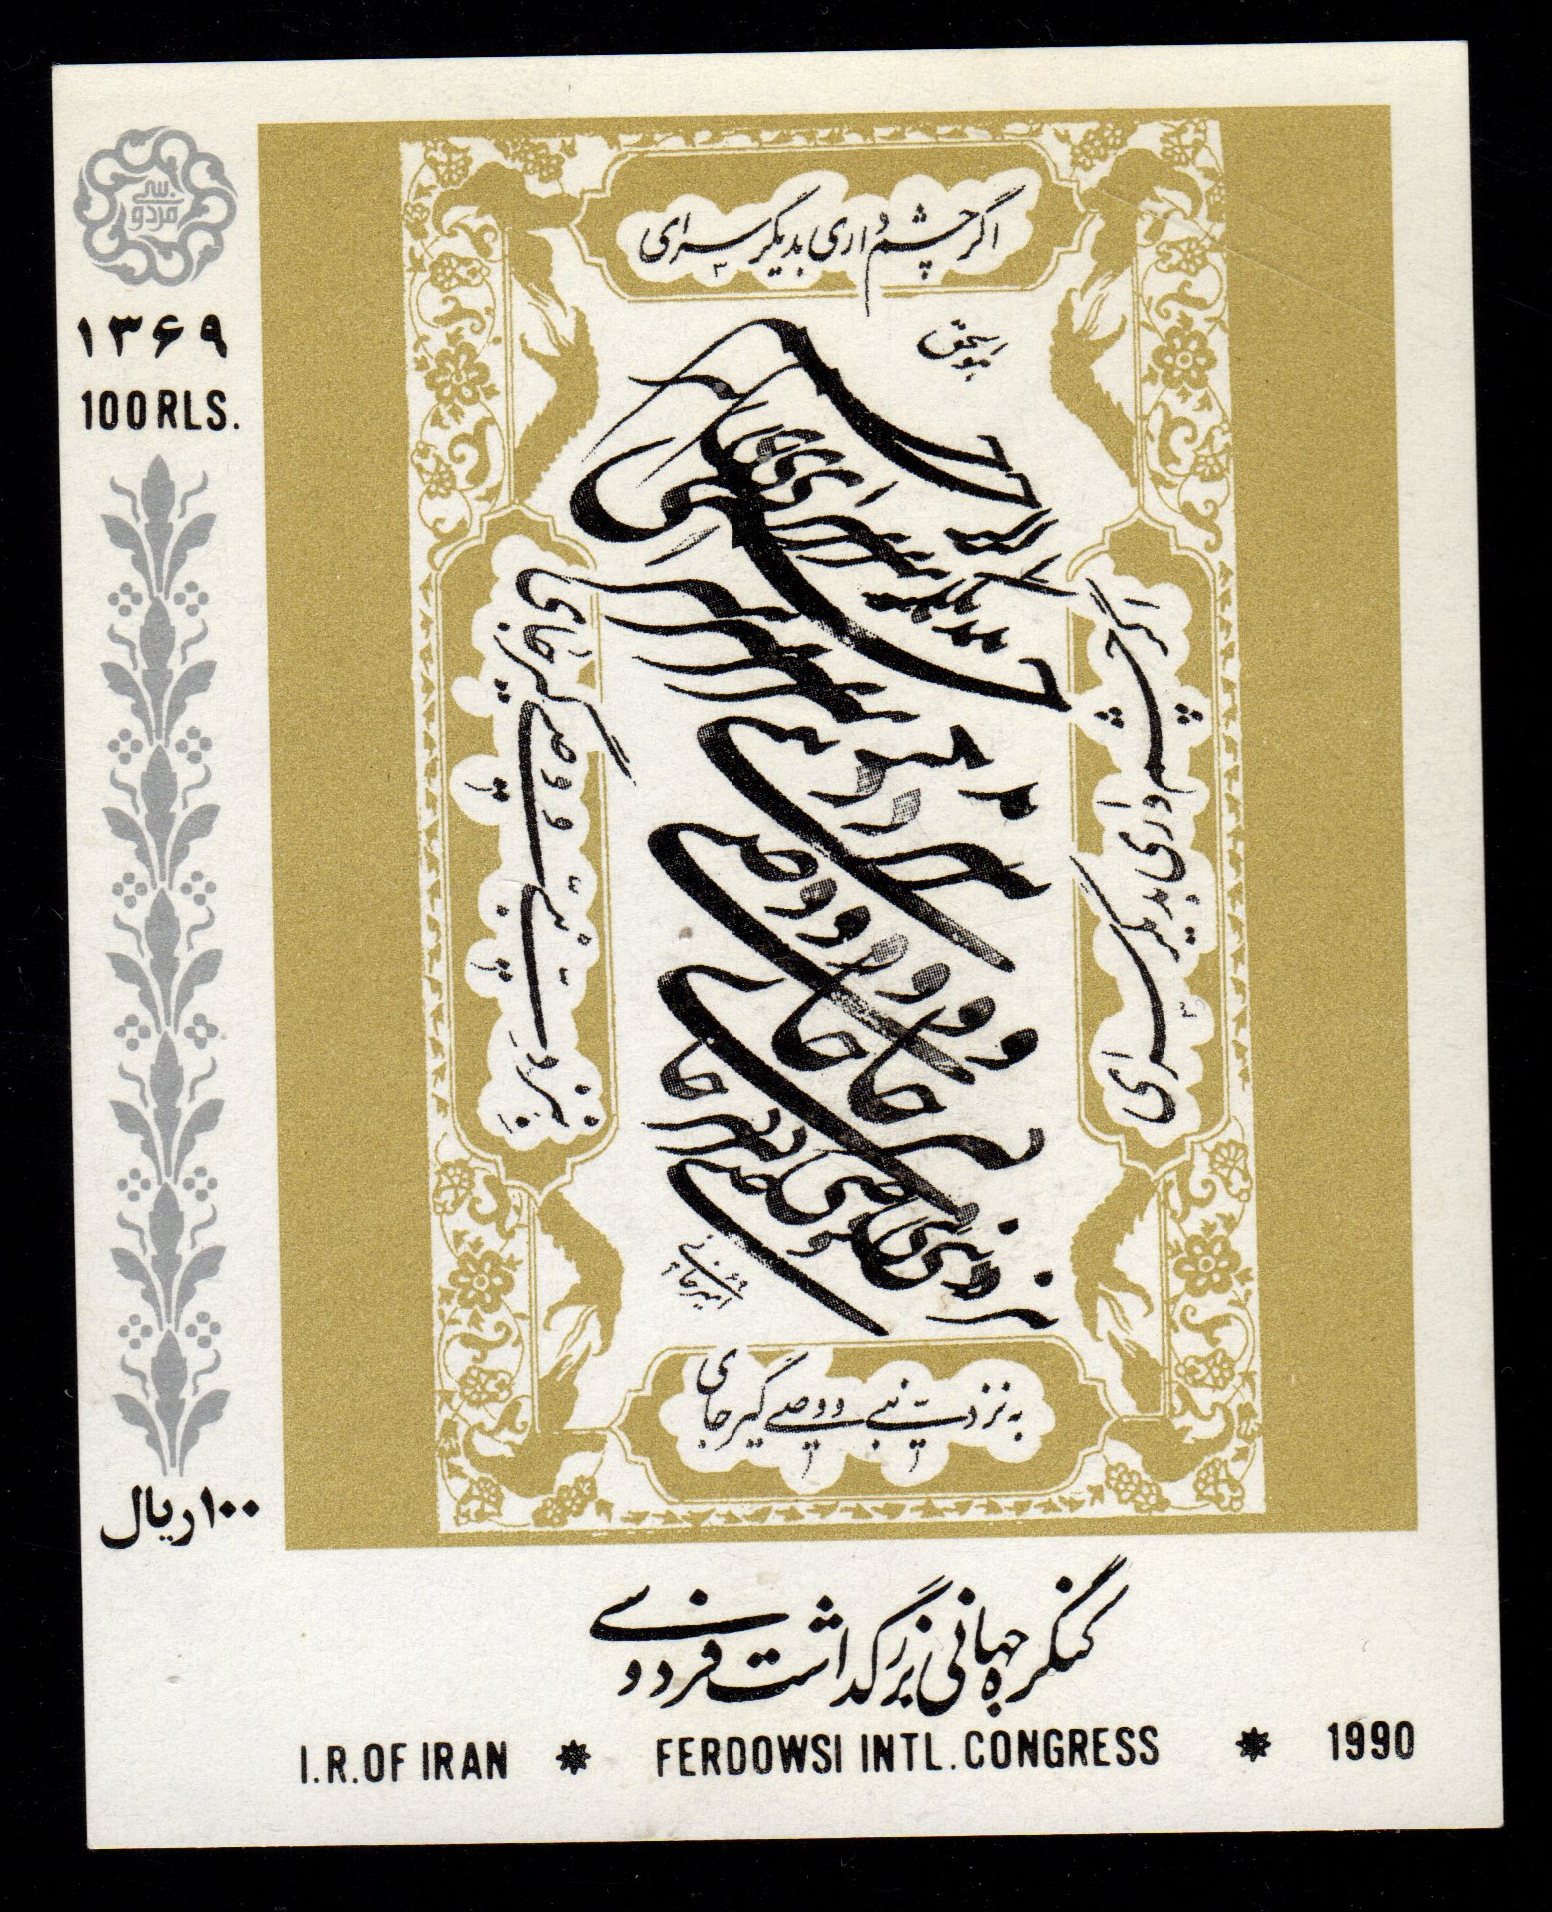 فردوسی
۱۳۶۹
100RLS.
اگر چشم داری بدیگر سرای
هوالحق
اگر چشم داری بدیگر سرای
به نزد نبی و وصی گیر جای
به نزد نبی و وصی گیر جای
۱۰۰ ریال
کنگره جهانی بزرگداشت فردوسی
I.R.OF IRAN * FERDOWSI INTL.CONGRESS * 1990